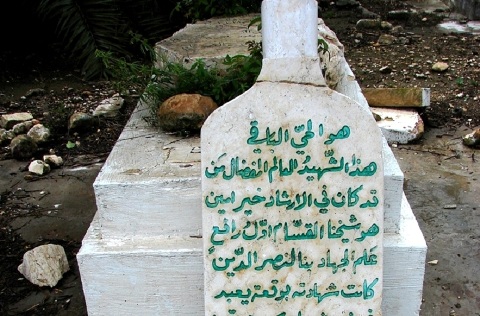 هو الحيّ الباقي
هذا الشهيدُ العالم المفضال مَن
قد كان في الارشاد خير امين
هو شيخنا القسّام اوّل رافعٍ
عَلم الجهاد بنا لنصر الدّين
كانت شهادته بوقعة يعبد